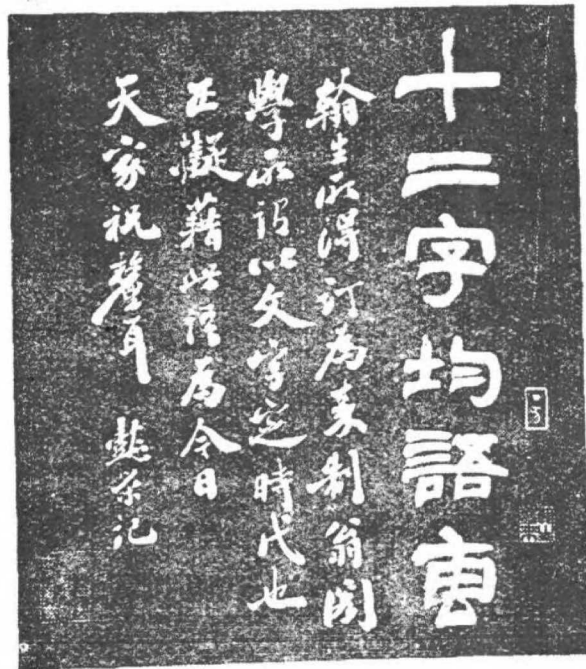 十二字均語叀
翰生所得訂為秦制翁閣
學所謂以文字定時代也
正擬藉此語為今日
天家祝釐耳 懿榮記